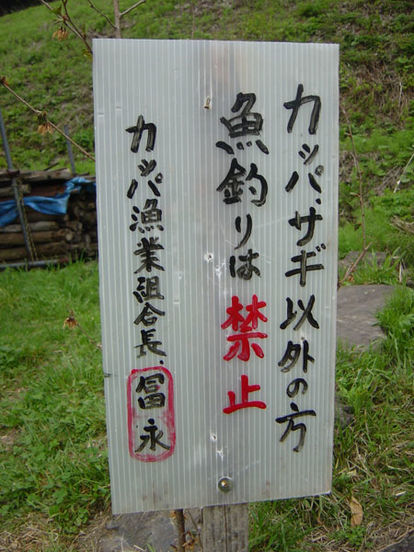 カッパ、サギ以外の方
魚釣りは禁止
カッパ漁業組合長、冨永